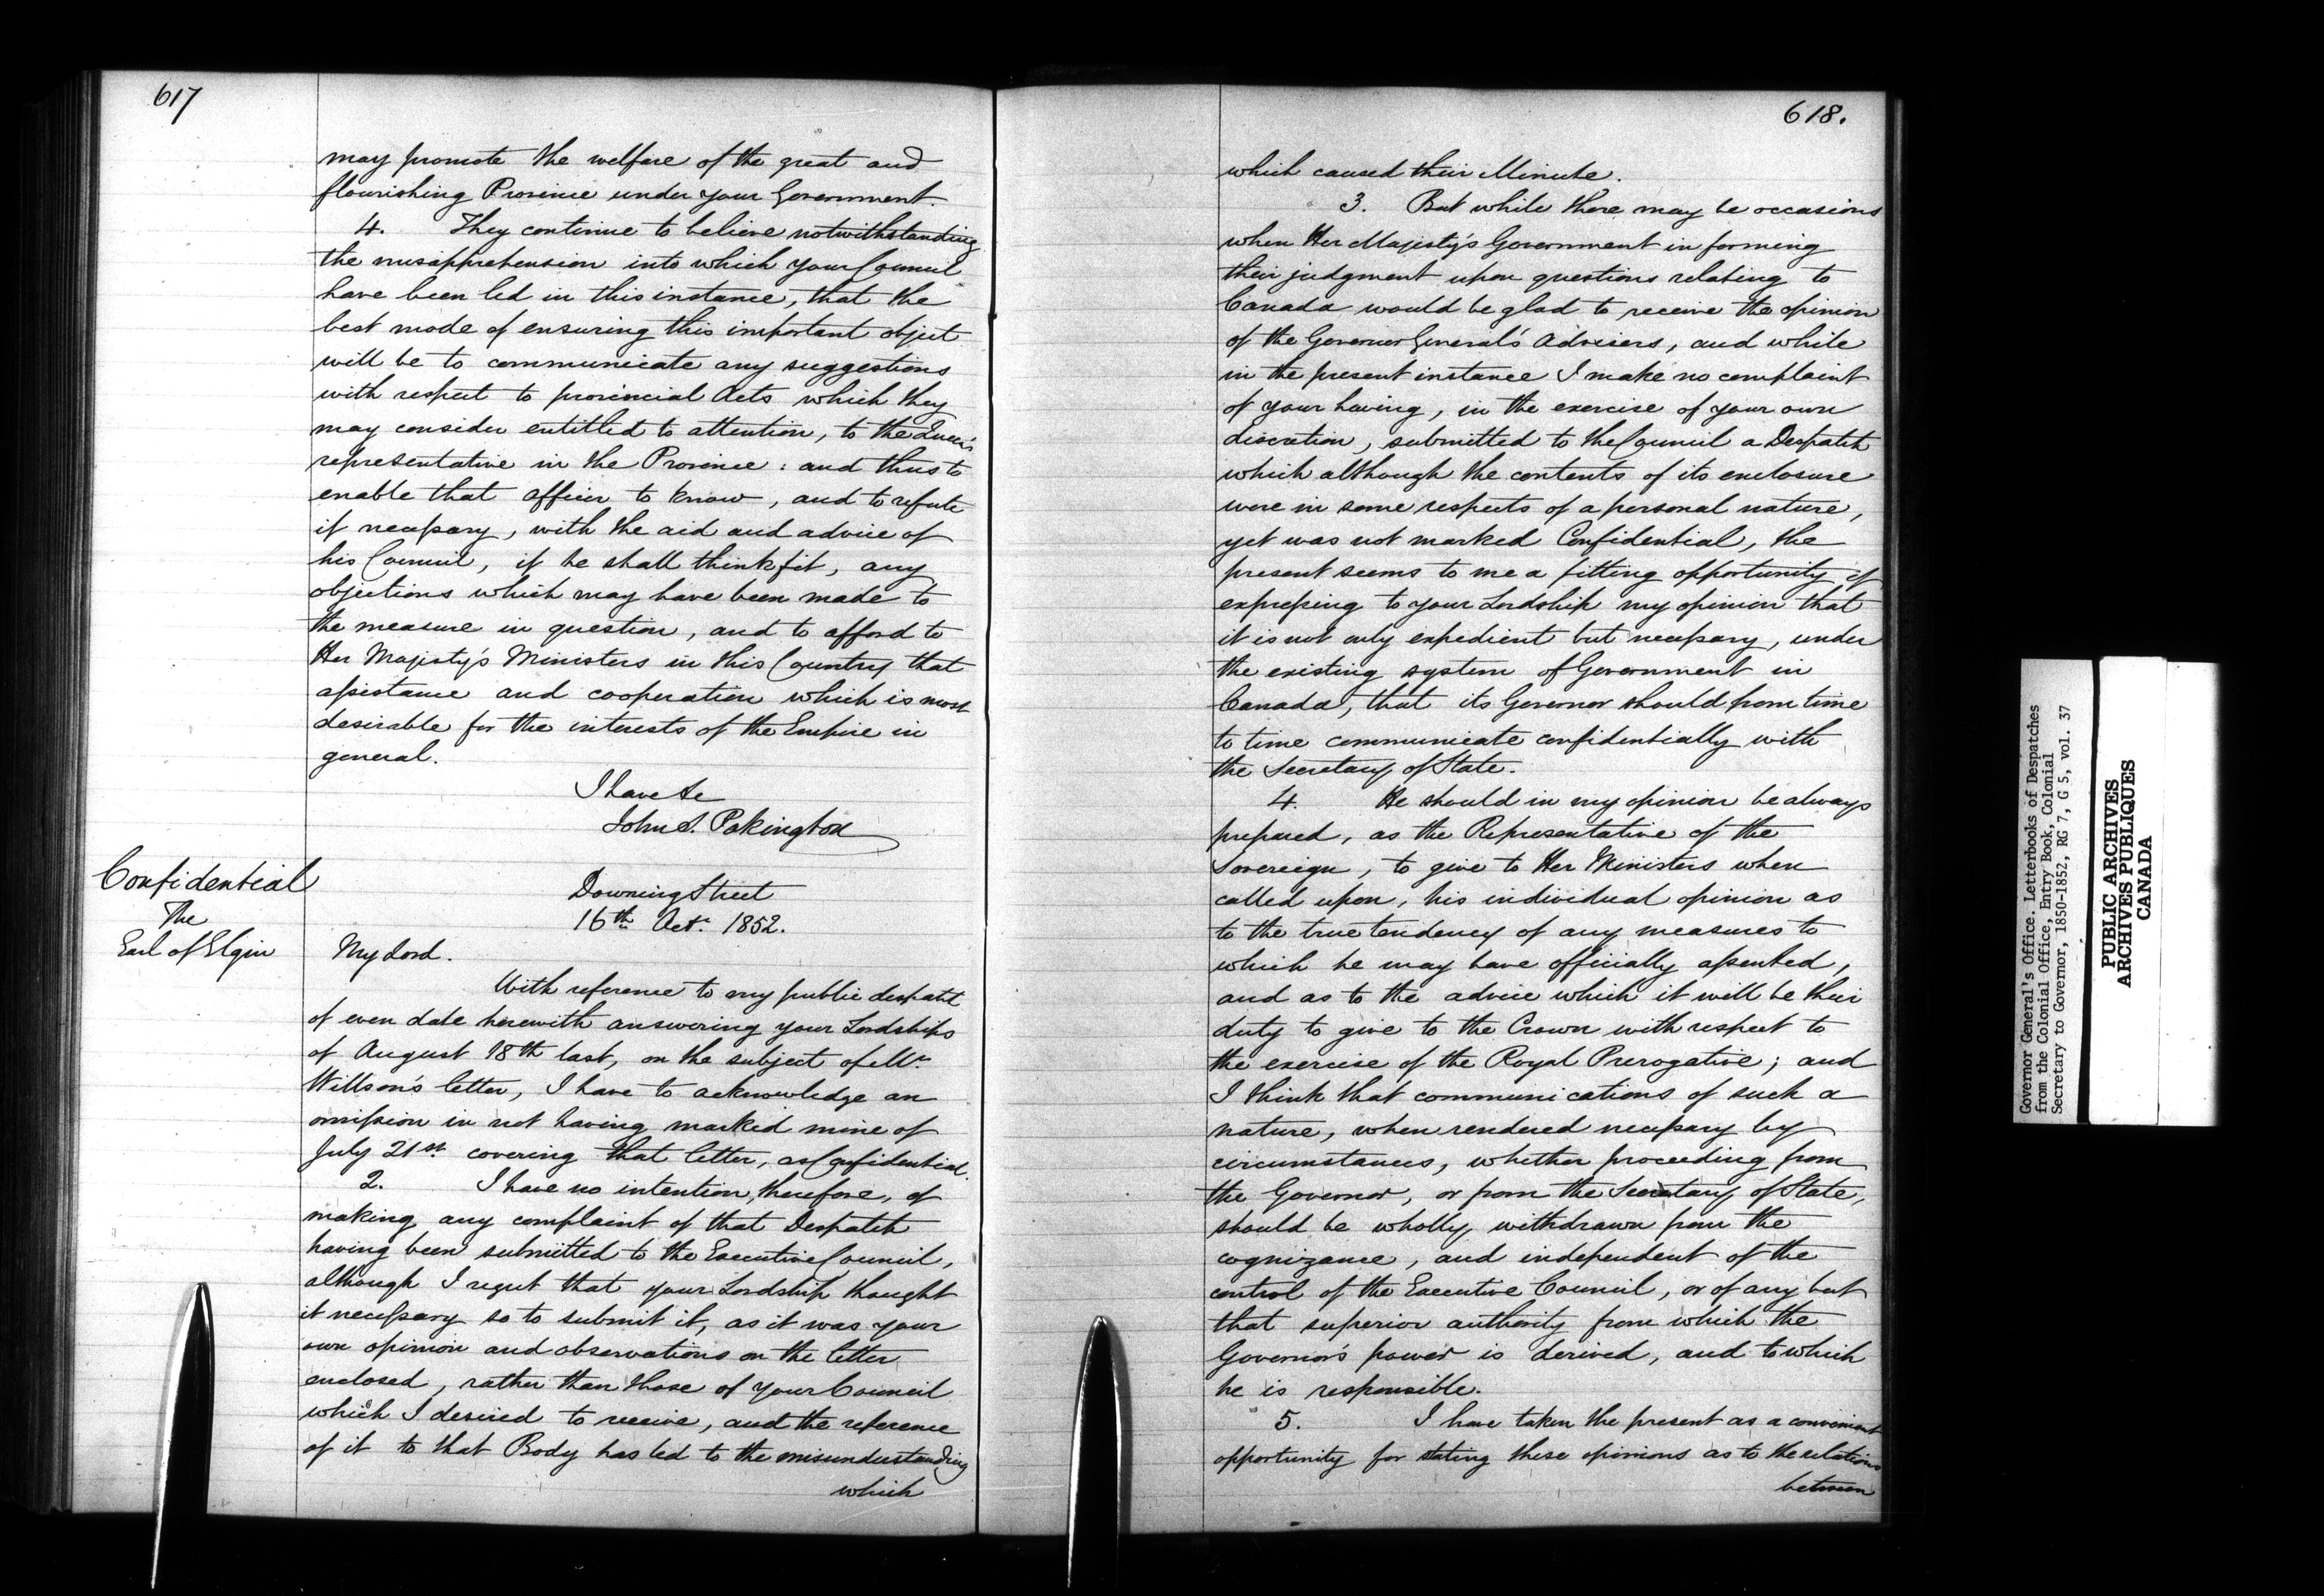 617
may promote the welfare of the great and
flourishing Province under your Government.
4. They continue to believe notwithstanding
the misapprehension into which your Council
have been led in this instance, that the
best mode of ensuring this important object
will be to communicate any suggestions
with respect to provincial Acts which they
may consider entitled to attention, to the Queen's
representative in the Province: and thus to
enable that officer to know, and to refute
if necessary, with the aid and advice of
his Council, if he shall think fit, any
objections which may have been made to
the measure in question, and to afford to
Her Majesty's Ministers in this Country that
assistance and cooperation which is most
desirable for the interests of the Empire in
general.
I have &c
John S. Pakington
Confidential
The
Earl of Elgin
Downing Street
16th Oct. 1852.
My Lord.
With reference to my public despatch
of even date herewith answering your Lordships
of August 18th last, on the subject of Mr.
Willson's letter, I have to acknowledge an
omission in not having marked mine of
July 21st covering that letter, as Confidential.
2. I have no intention, therefore, of
making any complaint of that Despatch
having been submitted to the Executive Council,
although I regret that your Lordship thought
it necessary so to submit it, as it was your
own opinion and observations on the letter
enclosed, rather than those of your Council
which I desired to receive, and the reference
of it to that Body has led to the misunderstanding
which
618.
which caused their Minute.
3. But while there may be occasions
when Her Majesty's Government in forming
their judgment upon questions relating to
Canada would be glad to receive the opinion
of the Governor General's Advisers, and while
in the present instance I make no complaint
of your having, in the exercise of your own
discretion, submitted to the Council a Despatch
which although the contents of its enclosure
were in some respects of a personal nature,
yet was not marked Confidential, the
present seems to me a fitting opportunity of
expressing to your Lordship my opinion that
it is not only expedient but necessary, under
the existing system of Government in
Canada, that its Governor should from time
to time communicate confidentially with
the Secretary of State.
4. He should in my opinion be always
prepared, as the Representative of the
Sovereign, to give to Her Ministers when
called upon, his individual opinion as
to the true tendency of any measures to
which he may have officially assented,
and as to the advice which it will be their
duty to give to the Crown with respect to
the exercise of the Royal Prerogative; and
I think that communications of such a
nature, when rendered necessary by
circumstances, whether proceeding from
the Governor, or from the Secretary of State,
should be wholly withdrawn from the
cognizance, and independent of the
control of the Executive Council, or of any but
that superior authority from which the
Governor's power is derived, and to which
he is responsible.
5. I have taken the present as a convenient
opportunity for stating these opinions as to the relations
between
Governor General's Office. Letterbooks of Despatches
from the Colonial Office, Entry Book, Colonial
Secretary to Governor, 1850-1852, RG 7, G 5, vol. 37
PUBLIC ARCHIVES
ARCHIVES PUBLIQUES
CANADA